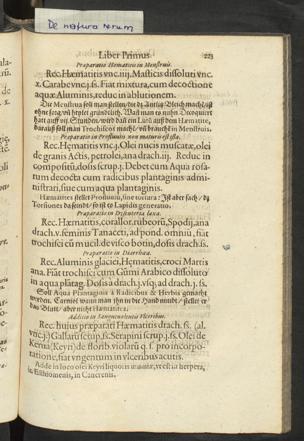 De natura rerum
Liber Primus
223
Præparatio Hæmatitis in Menstruis.
Rec. Hæmatitis vnc. iiij. Masticis dissoluti vnc.
x. Carabe vnc. j. ß. Fiat mixtura, cum decoctione
aquæ Aluminis, reduc in ablutionem.
Die Menstrua soll man stellen / die
ohne seg
hatt auff
darauß soll man Trochiscos
in Menstruis.
Præparatio in Profluuio
Rec. Hęmatitis vnc. j. Olei nucis muscatæ, olei
de granis Actis, petrolei, ana drach. iij. Reduc in
compositū, dosis scrup. j. Debet cum Aqua rosa-
rum decocta cum radicibus plantaginis admi-
nistrari, siue cum aqua plantaginis.
Hæmatites stellet Profluuium, sine tortura: Ist aber sach / dz
Torsiones da send / so ist es Lapidis generatio.
Præparatio in Disenteria laxa.
Rec. Hæmatitis, corallor. rubeorū, Spodij, ana
drach. v. seminis Tanaceti, ad pond. omniū, fiat
trochisci cū mucil. de visco botin, dosis drach. ß.
Præparatio in Diarrhœa.
Rec. Aluminis glaciei, Hęmatitis, croci Martis
ana. Fiāt trochisci cum Gūmi Arabico dissoluto
in aqua plātag. Dosis à drach. j. vsq; ad drach. j. ß.
Solt Aqua Plantaginis à Radicibus & Herbis gemacht
werden. Carniol wann man ihn in die Hand nimbt / stellet er
das Blutt / aber nit Hæmatites.
Additio in Sanguinolentis Vlceribus.
Rec. huius præparati Hæmatitis drach. ß. (al.
vnc. j.) Galbari scrup. ß. Serapini scrup. j. ß. Olei de
Kerua (Keyri) de florib. violarū q. s. pro incorpo-
ratione, fiat vngentum in vlceribus acutis.
Adde in loco olei Keyri liquorē mumię, vt est in herpeta,
in Esthiomenis, in Cancrenis.